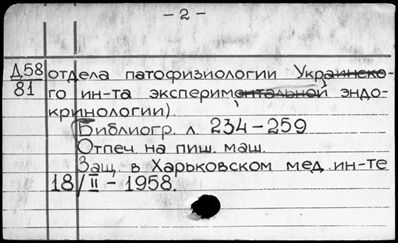 - 2 -
Д58 отдела патофизиологии Украинско-
81 го ин-та экспериментальной эндо-
кринологии).
Библиогр. л. 234-259
Отпеч. на пиш. маш.
Защ. в Харьковском мед. ин-те
18/II - 1958.